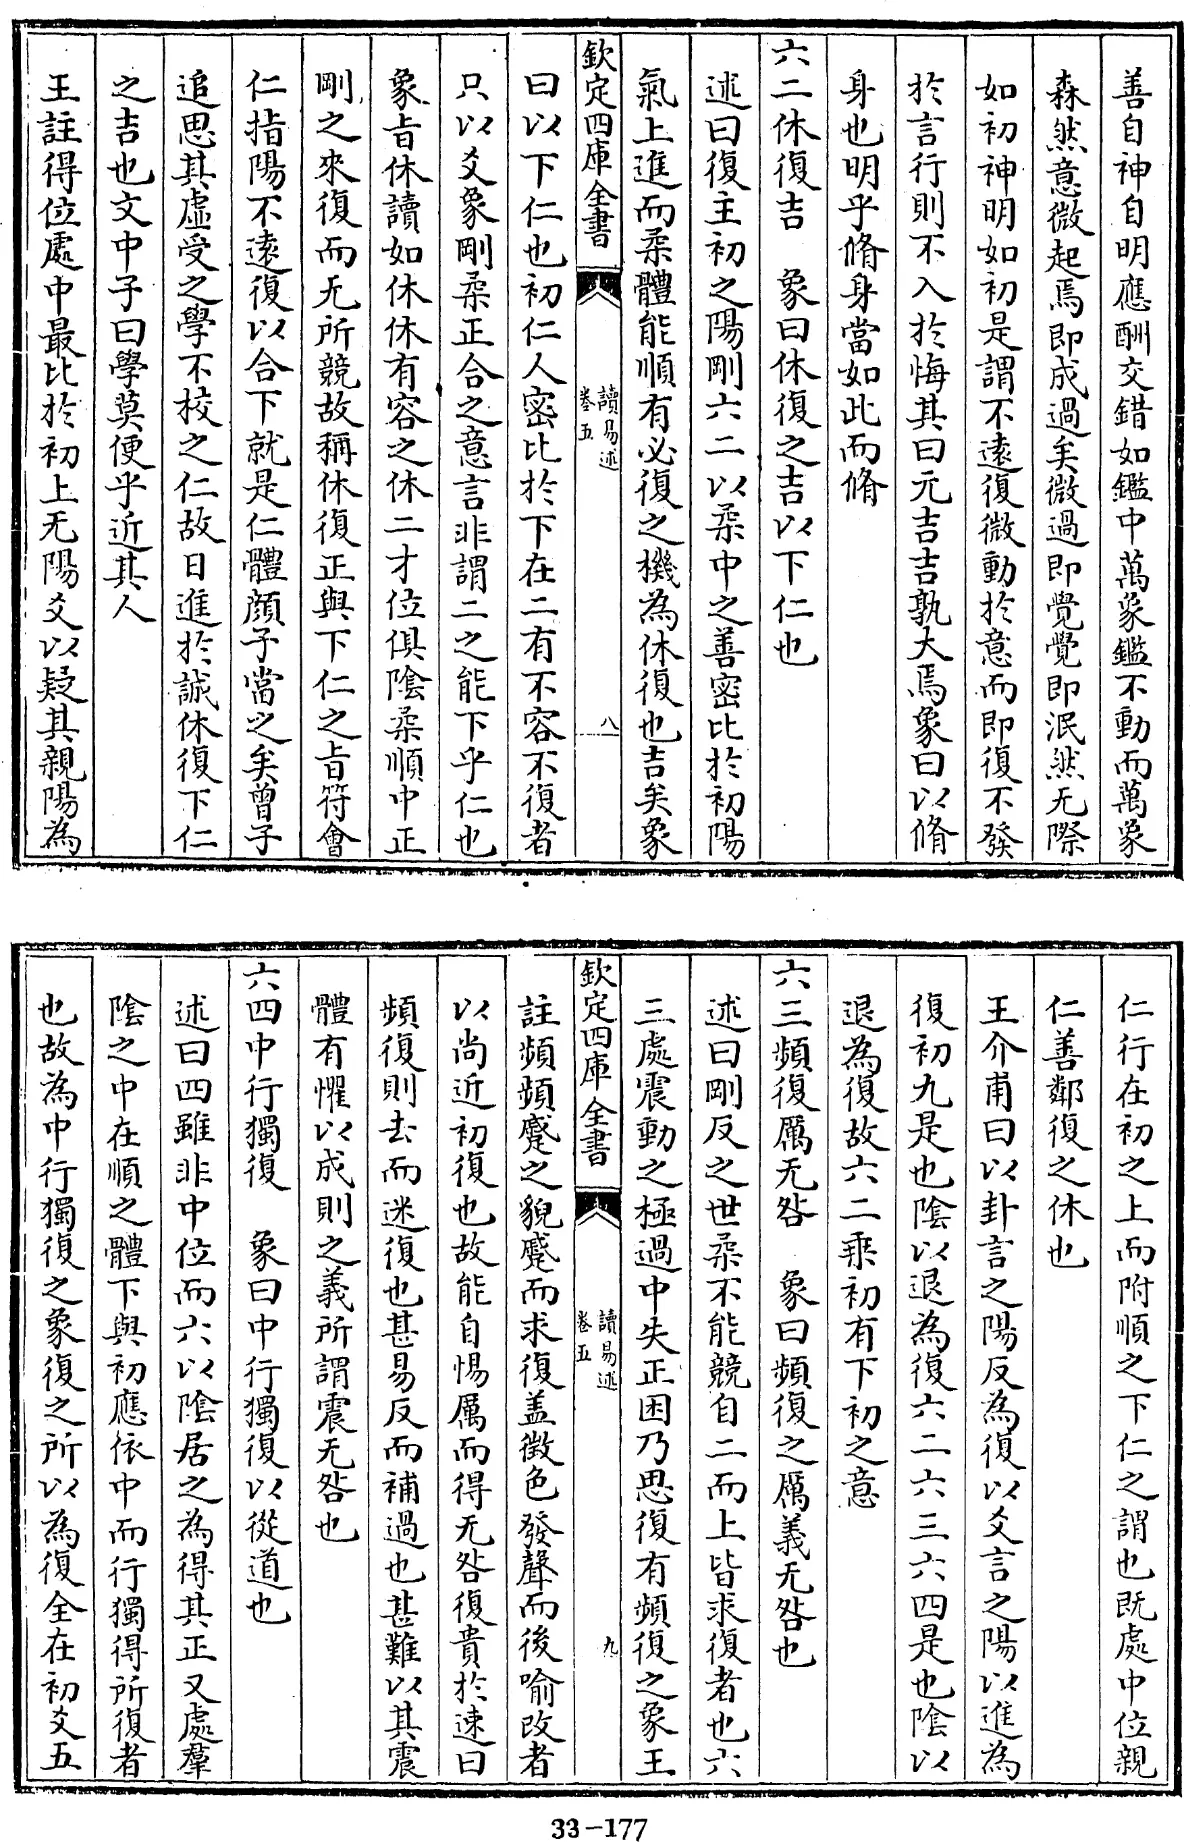 善自神自明應酬交錯如鑑中萬象鑑不動而萬象
森然意微起焉即成過矣微過即覺覺即泯然无際
如初神明如初是謂不遠復微動於意而即復不發
於言行則不入於悔其曰元吉吉孰大焉象曰以脩
身也明乎脩身當如此而脩
六二休復吉　象曰休復之吉以下仁也
述曰復主初之陽剛六二以柔中之善密比於初陽
氣上進而柔體能順有必復之機為休復也吉矣象
欽定四庫全書
讀易述
卷五
八
曰以下仁也初仁人密比於下在二有不容不復者
只以爻象剛柔正合之意言非謂二之能下乎仁也
象旨休讀如休休有容之休二才位俱陰柔順中正
剛之來復而无所競故稱休復正與下仁之旨符會
仁指陽不遠復以合下就是仁體顔子當之矣曾子
追思其虛受之學不校之仁故日進於誠休復下仁
之吉也文中子曰學莫便乎近其人
王註得位處中最比於初上无陽爻以疑其親陽為
仁行在初之上而附順之下仁之謂也既處中位親
仁善鄰復之休也
王介甫曰以卦言之陽反為復以爻言之陽以進為
復初九是也陰以退為復六二六三六四是也陰以
退為復故六二乘初有下初之意
六三頻復厲无咎　象曰頻復之厲義无咎也
述曰剛反之世柔不能競自二而上皆求復者也六
三處震動之極過中失正困乃思復有頻復之象王
欽定四庫全書
讀易述
卷五
九
註頻頻蹙之貌蹙而求復盖徵色發聲而後喻改者
以尚近初復也故能自惕厲而得无咎復貴於速曰
頻復則去而迷復也甚易反而補過也甚難以其震
體有懼以成則之義所謂震无咎也
六四中行獨復　象曰中行獨復以從道也
述曰四雖非中位而六以陰居之為得其正又處羣
陰之中在順之體下與初應依中而行獨得所復者
也故為中行獨復之象復之所以為復全在初爻五
33-177